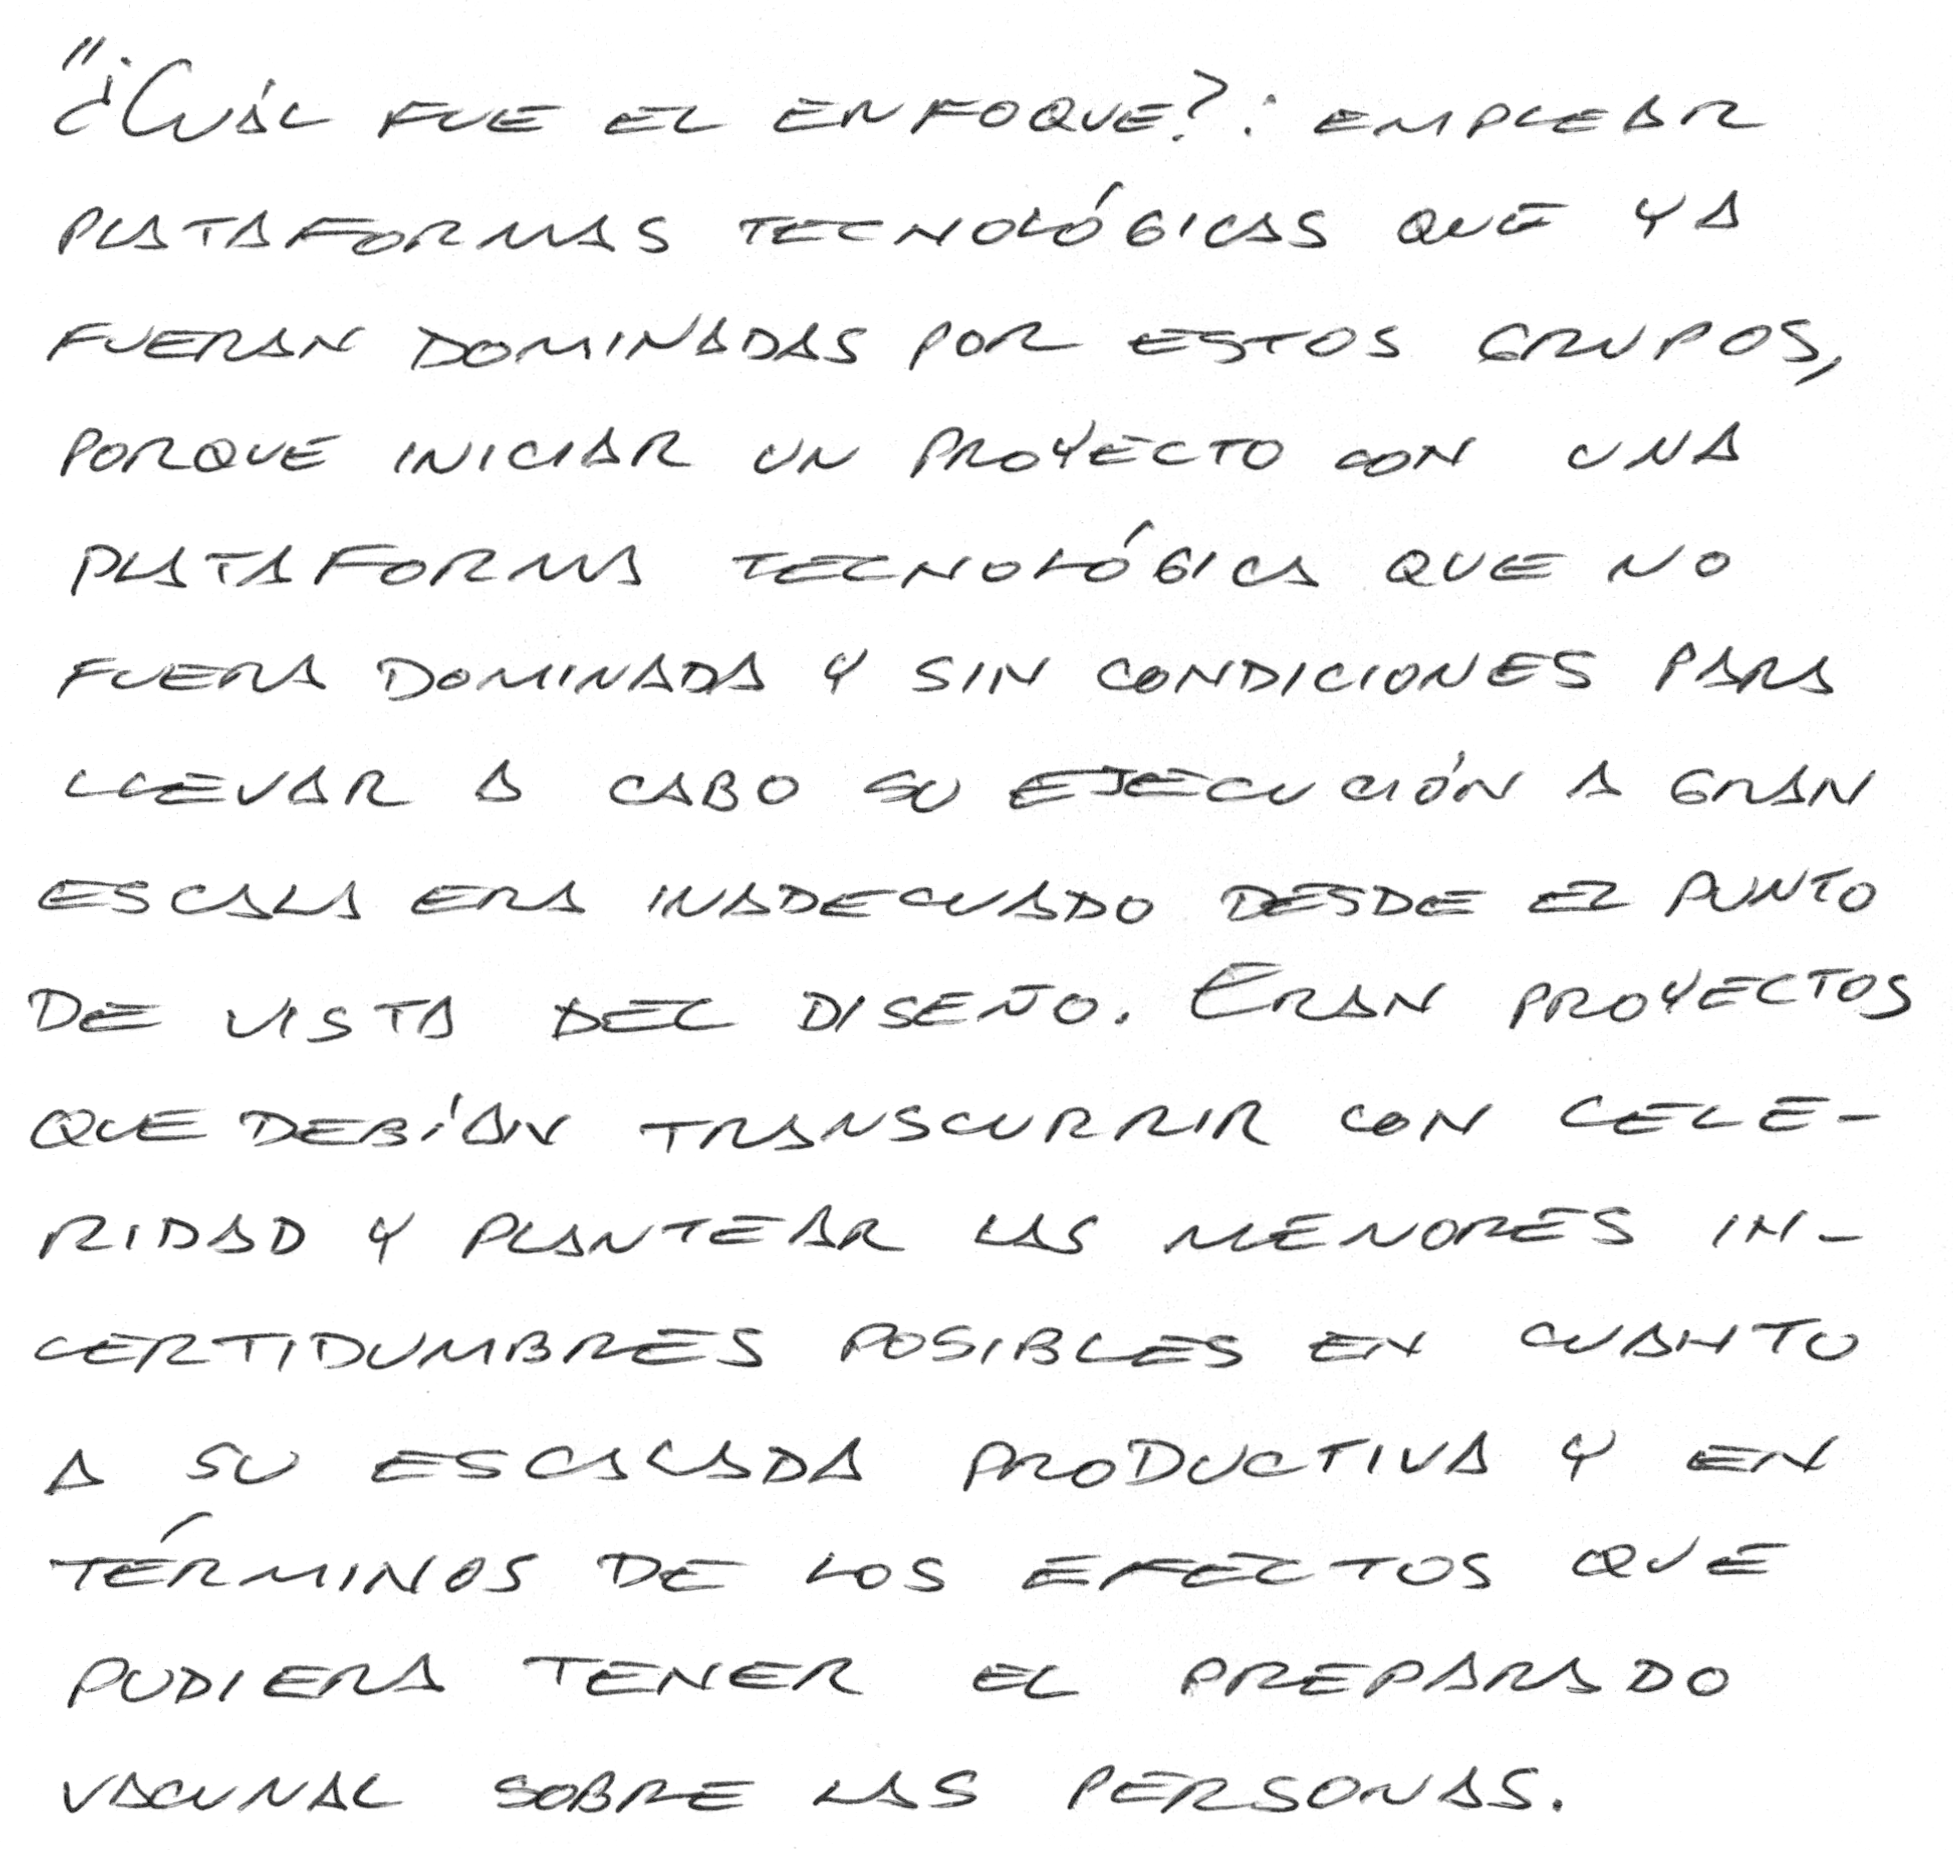 "¿Cuál fue el enfoque?: emplear
plataformas tecnológicas que ya
fueran dominadas por estos grupos,
porque iniciar un proyecto con una
plataforma tecnológica que no
fuera dominada y sin condiciones para
llevar a cabo su ejecución a gran
escala era inadecuado desde el punto
de vista del diseño. Eran proyectos
que debían transcurrir con cele-
ridad y plantear las menores in-
certidumbres posibles en cuanto
a su escalada productiva y en
términos de los efectos que
pudiera tener el preparado
vacunal sobre las personas.